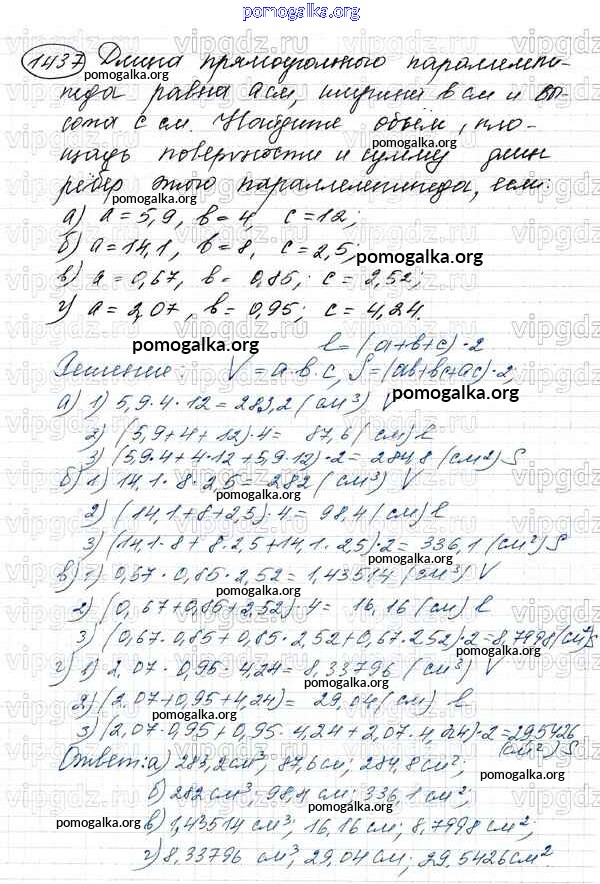 pomogalka.org
1437 Длина прямоугольного параллелепи-
педа равна a см, ширина b см и вы-
сота c см. Найдите объём, пло-
щадь поверхности и сумму длин
рёбер этого параллелепипеда, если:
а) a = 5,9, b = 4, c = 12;
б) a = 14,1, b = 8, c = 2,5;
в) a = 0,67, b = 0,85; c = 2,52;
г) a = 2,07, b = 0,95; c = 4,24.
l = (a+b+c)·2
Решение: V = a·b·c, S = (ab+bc+ac)·2,
а) 1) 5,9·4·12 = 283,2 (см³) V
2) (5,9+4+12)·4 = 87,6 (см) l
3) (5,9·4+4·12+5,9·12)·2 = 284,8 (см2) S
б) 1) 14,1·8·2,5 = 282 (см³) V
2) (14,1+8+2,5)·4 = 98,4 (см) l
3) (14,1·8+8·2,5+14,1·2,5)·2 = 336,1 (см²) S
в) 1) 0,67·0,85·2,52 = 1,43514 (см³) V
2) (0,67+0,85+2,52)·4 = 16,16 (см) l
3) (0,67·0,85+0,85·2,52+0,67·2,52)·2 = 8,7998 (см²) S
г) 1) 2,07·0,95·4,24 = 8,33796 (см³) V
2) (2,07+0,95+4,24) = 29,04 (см) l
3) (2,07·0,95+0,95·4,24+2,07·4,24)·2 = 29,5426
(см²) S
Ответ: а) 283,2 см³; 87,6 см; 284,8 см²;
б) 282 см³; 98,4 см; 336,1 см²;
в) 1,43514 см³; 16,16 см; 8,7998 см²;
г) 8,33796 см³; 29,04 см; 29,5426 см².